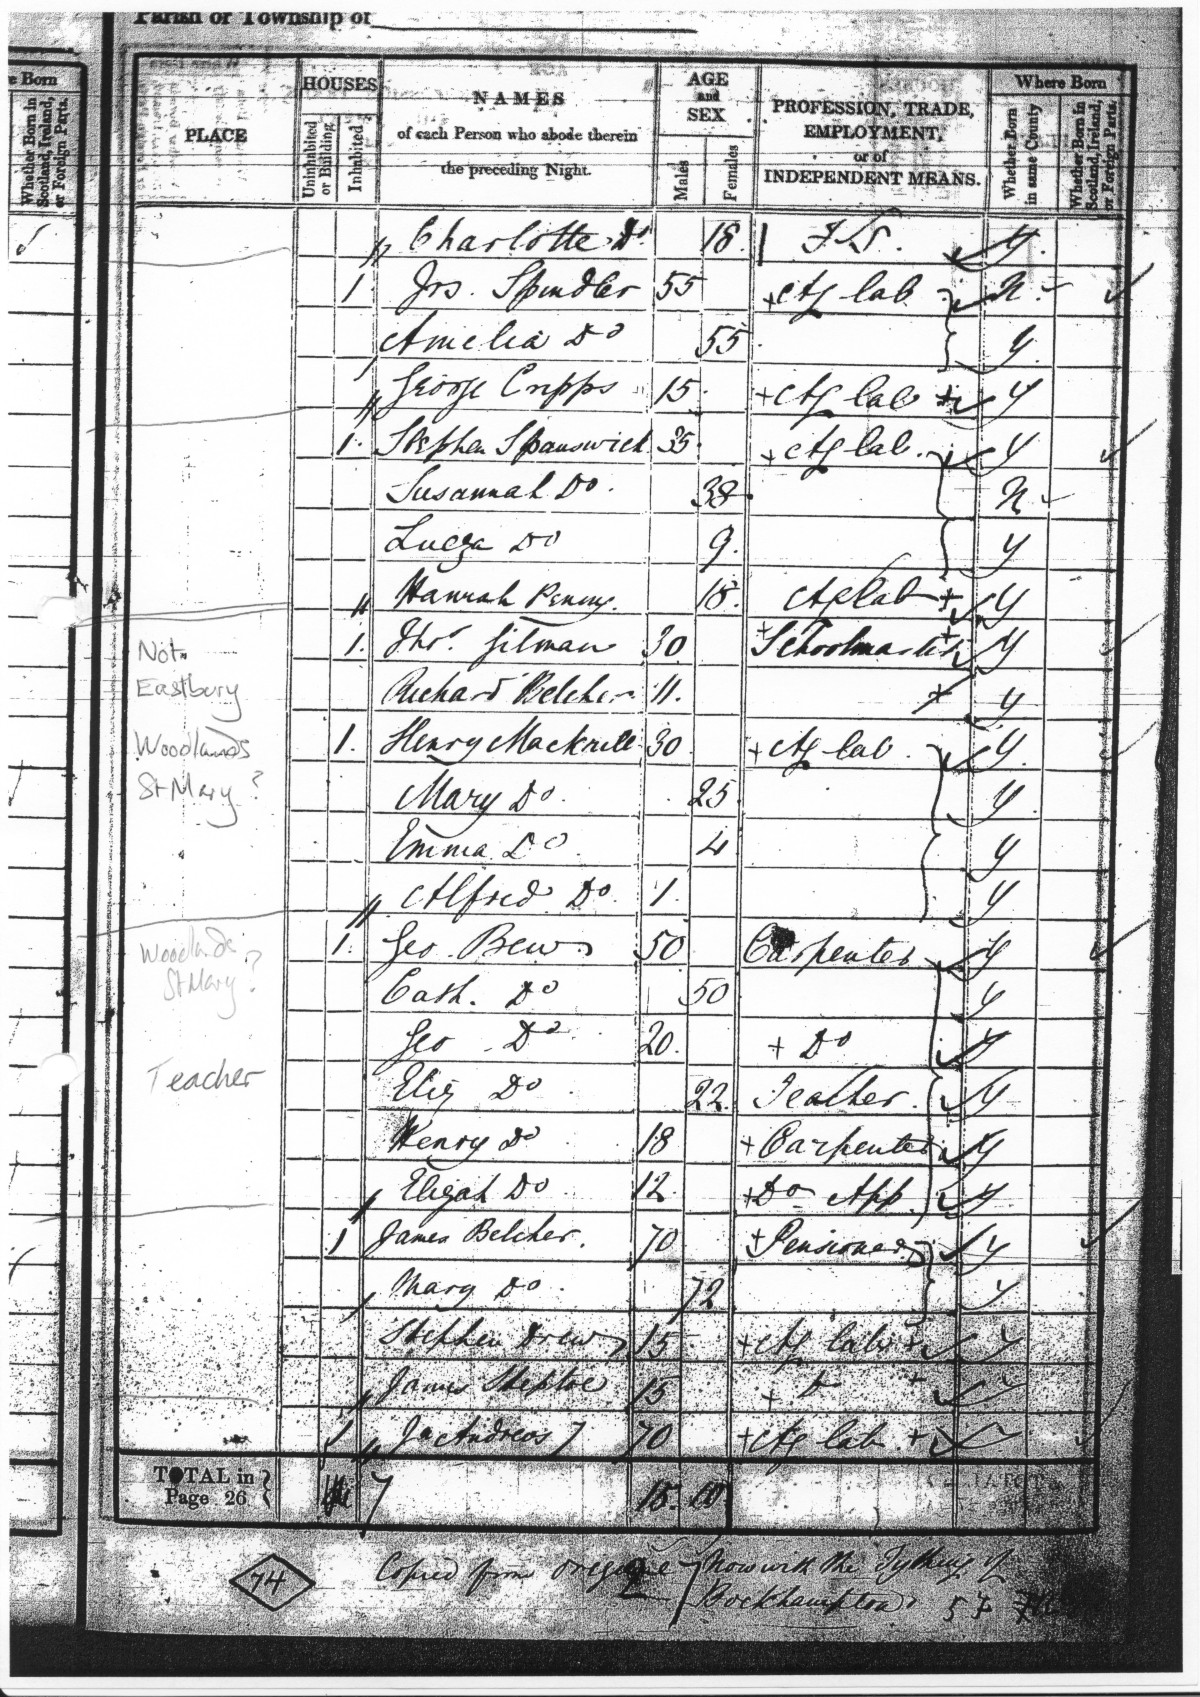 Parish or Township of
e Born
Whether Born in Scotland, Ireland, or Foreign Parts.
PLACE
HOUSES
Uninhabited or Building
Inhabited
NAMES
of each Person who abode therein
the preceding Night.
AGE and SEX
Males
Females
PROFESSION, TRADE,
EMPLOYMENT,
or of
INDEPENDENT MEANS.
Where Born
Whether Born in same County
Whether Born in Scotland, Ireland, or Foreign Parts.
Charlotte Do 18 F.S. Y
1 Jos. Spindler 55 Ag lab N
Amelia Do 55 Y
George Cripps 15 Ag lab Y
1 Stephen Spanswick 35 Ag lab Y
Susannah Do 38 N
Do 9 Y
Hannah Penny 18 Ag lab Y
Not 1 Thos. Gilman 30 Schoolmaster Y
Eastbury Richard Belcher 11 Y
Woodlands 1 Henry Mackrell 30 Ag lab Y
St Mary? Mary Do 25 Y
Emma Do 4 Y
Alfred Do 1 Y
Woodlands 1 Geo Bew 50 Carpenter Y
St Mary? Cath. Do 50 Y
Geo Do 20 Do Y
Teacher Eliz Do 22 Teacher Y
Henry Do 18 Carpenter Y
Elijah Do 12 Do App Y
1 James Belcher 70 Pensioner Y
Mary Do 72 Y
Stephen Drew 15 Ag lab Y
James Skeptoe 15 D Y
1 Jas Andrews 70 Ag lab
TOTAL in
Page 26 7 15 10
74
Copied from original
Now with the Tything of
Bockhampton